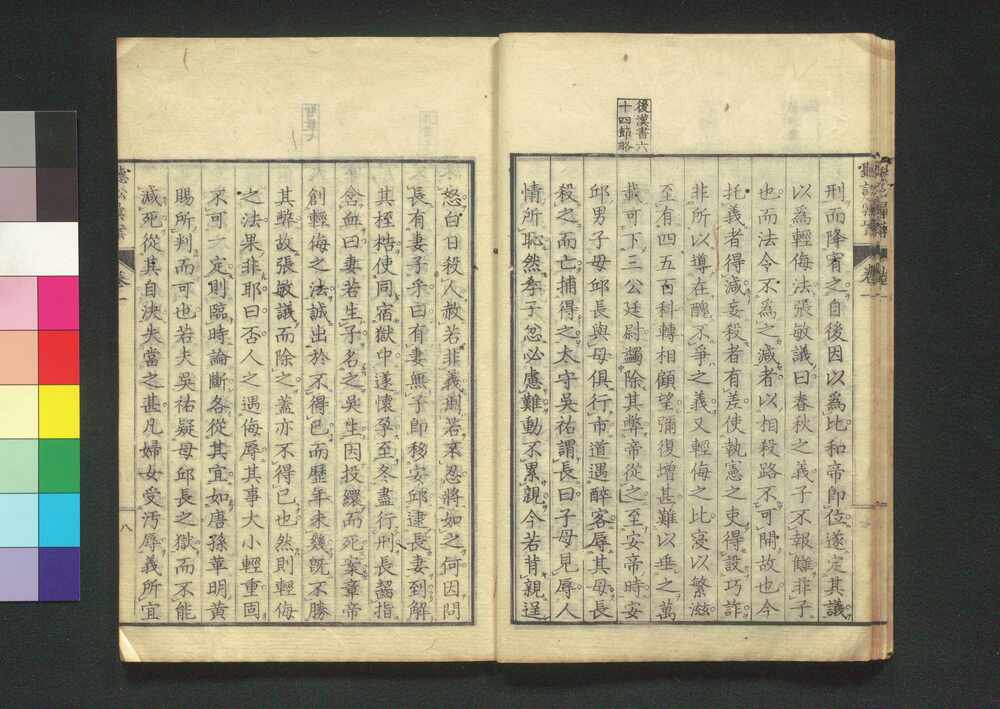 後漢書六
十四節略
刑而降宥之自後因以爲比和帝即位遂定其議
以爲輕侮法張敏議曰春秋之義子不報讎非子
也而法令不爲之減者以相殺路不可開故也今
托義者得減妄殺者有差使執憲之吏得設巧詐
非所以導在醜不爭之義又輕侮之比寖以繁滋
至有四五百科轉相顧望彌復增甚難以垂之萬
載可下三公廷尉蠲除其弊帝從之至安帝時安
邱男子母邱長與母俱行市道遇醉客辱其母長
殺之而亡捕得之太守吳祐謂長曰子母見辱人
情所恥然孝子忿必慮難動不累親今若背親逞
怒白日殺人赦若非義刑若不忍將如之何因問
長有妻子乎曰有妻無子即移安邱逮長妻到解
其桎梏使同宿獄中遂懷孕至冬盡行刑長齧指
含血曰妻若生子名之吳生因投繯而死案章帝
創輕侮之法誠出於不得已而歷年未幾既不勝
其弊故張敏議而除之蓋亦不得已也然則輕侮
之法果非耶曰否人之遇侮辱其事大小輕重固
不可一定則臨時論斷各從其宜如唐孫華明黃
賜所判而可也若夫吳祐疑母邱長之獄而不能
減死從其自決失當之甚凡婦女受汚辱義所宜
卷一
八